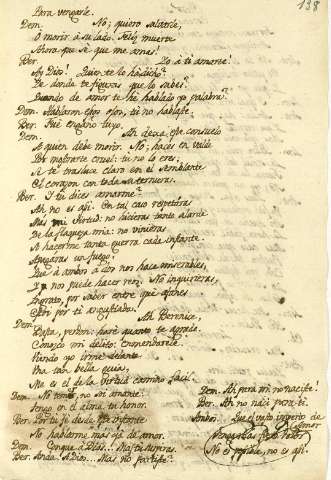 138
Para vengarle.
Dem. No; quiero salvarle,
O morir à su lado. Feliz muerte
Ahora que sè que me amas!
Ber. Yo à ti amarte!
Ay Dios! Quien te lo ha dicho?
De donde te figuras que lo sabes?
Quando de amor te hè hablado yo palabra?
Dem. Hablaron esos ojos, tù no hablaste.
Ber. Fuè engaño tuyo.
Dem. Ah dexa este consuelo
A quien debe morir. No; haces en valde
Por mostrarte cruel: tu no lo eres;
Se te trasluce claro en el semblante
El corazon con toda su ternura.
Ber. I tu dices amarme?
Ah no es asi. En tal caso respetàras
Mas mi virtud: no hicieras tanto alarde
De la flaqueza mia: no vinieras
A hacerme tanta guerra cada instante.
Apagàras un fuego,
Que à ambos à dos nos hace miserables,
Y no nos puede hacer reos. No inquirieras,
Ingrato, por saber entre què afanes
Està por ti
Dem. Ah Berenice,
Basta, perdon: harè quanto te agrada.
Conozco mi delito: enmendarèle
Viendo yo irme delante
Una tan bella guia,
Mas es el de la virtud camino facil.
Dem. No temas, no soi amante:
Tengo en el alma tu honor.
Ber. Por tu fè desde este instante
No hablarme mas oyà de amor.
Dem. Conque à Dios... Mas tu suspiras.
Ber. Anda. A Dios... Mas no partiste?
Dem. Ah, para mi no naciste!
Ber. Ah no naci para ti.
Ambos. Que el vasto imperio de
Amor
No es posible, no es asi.